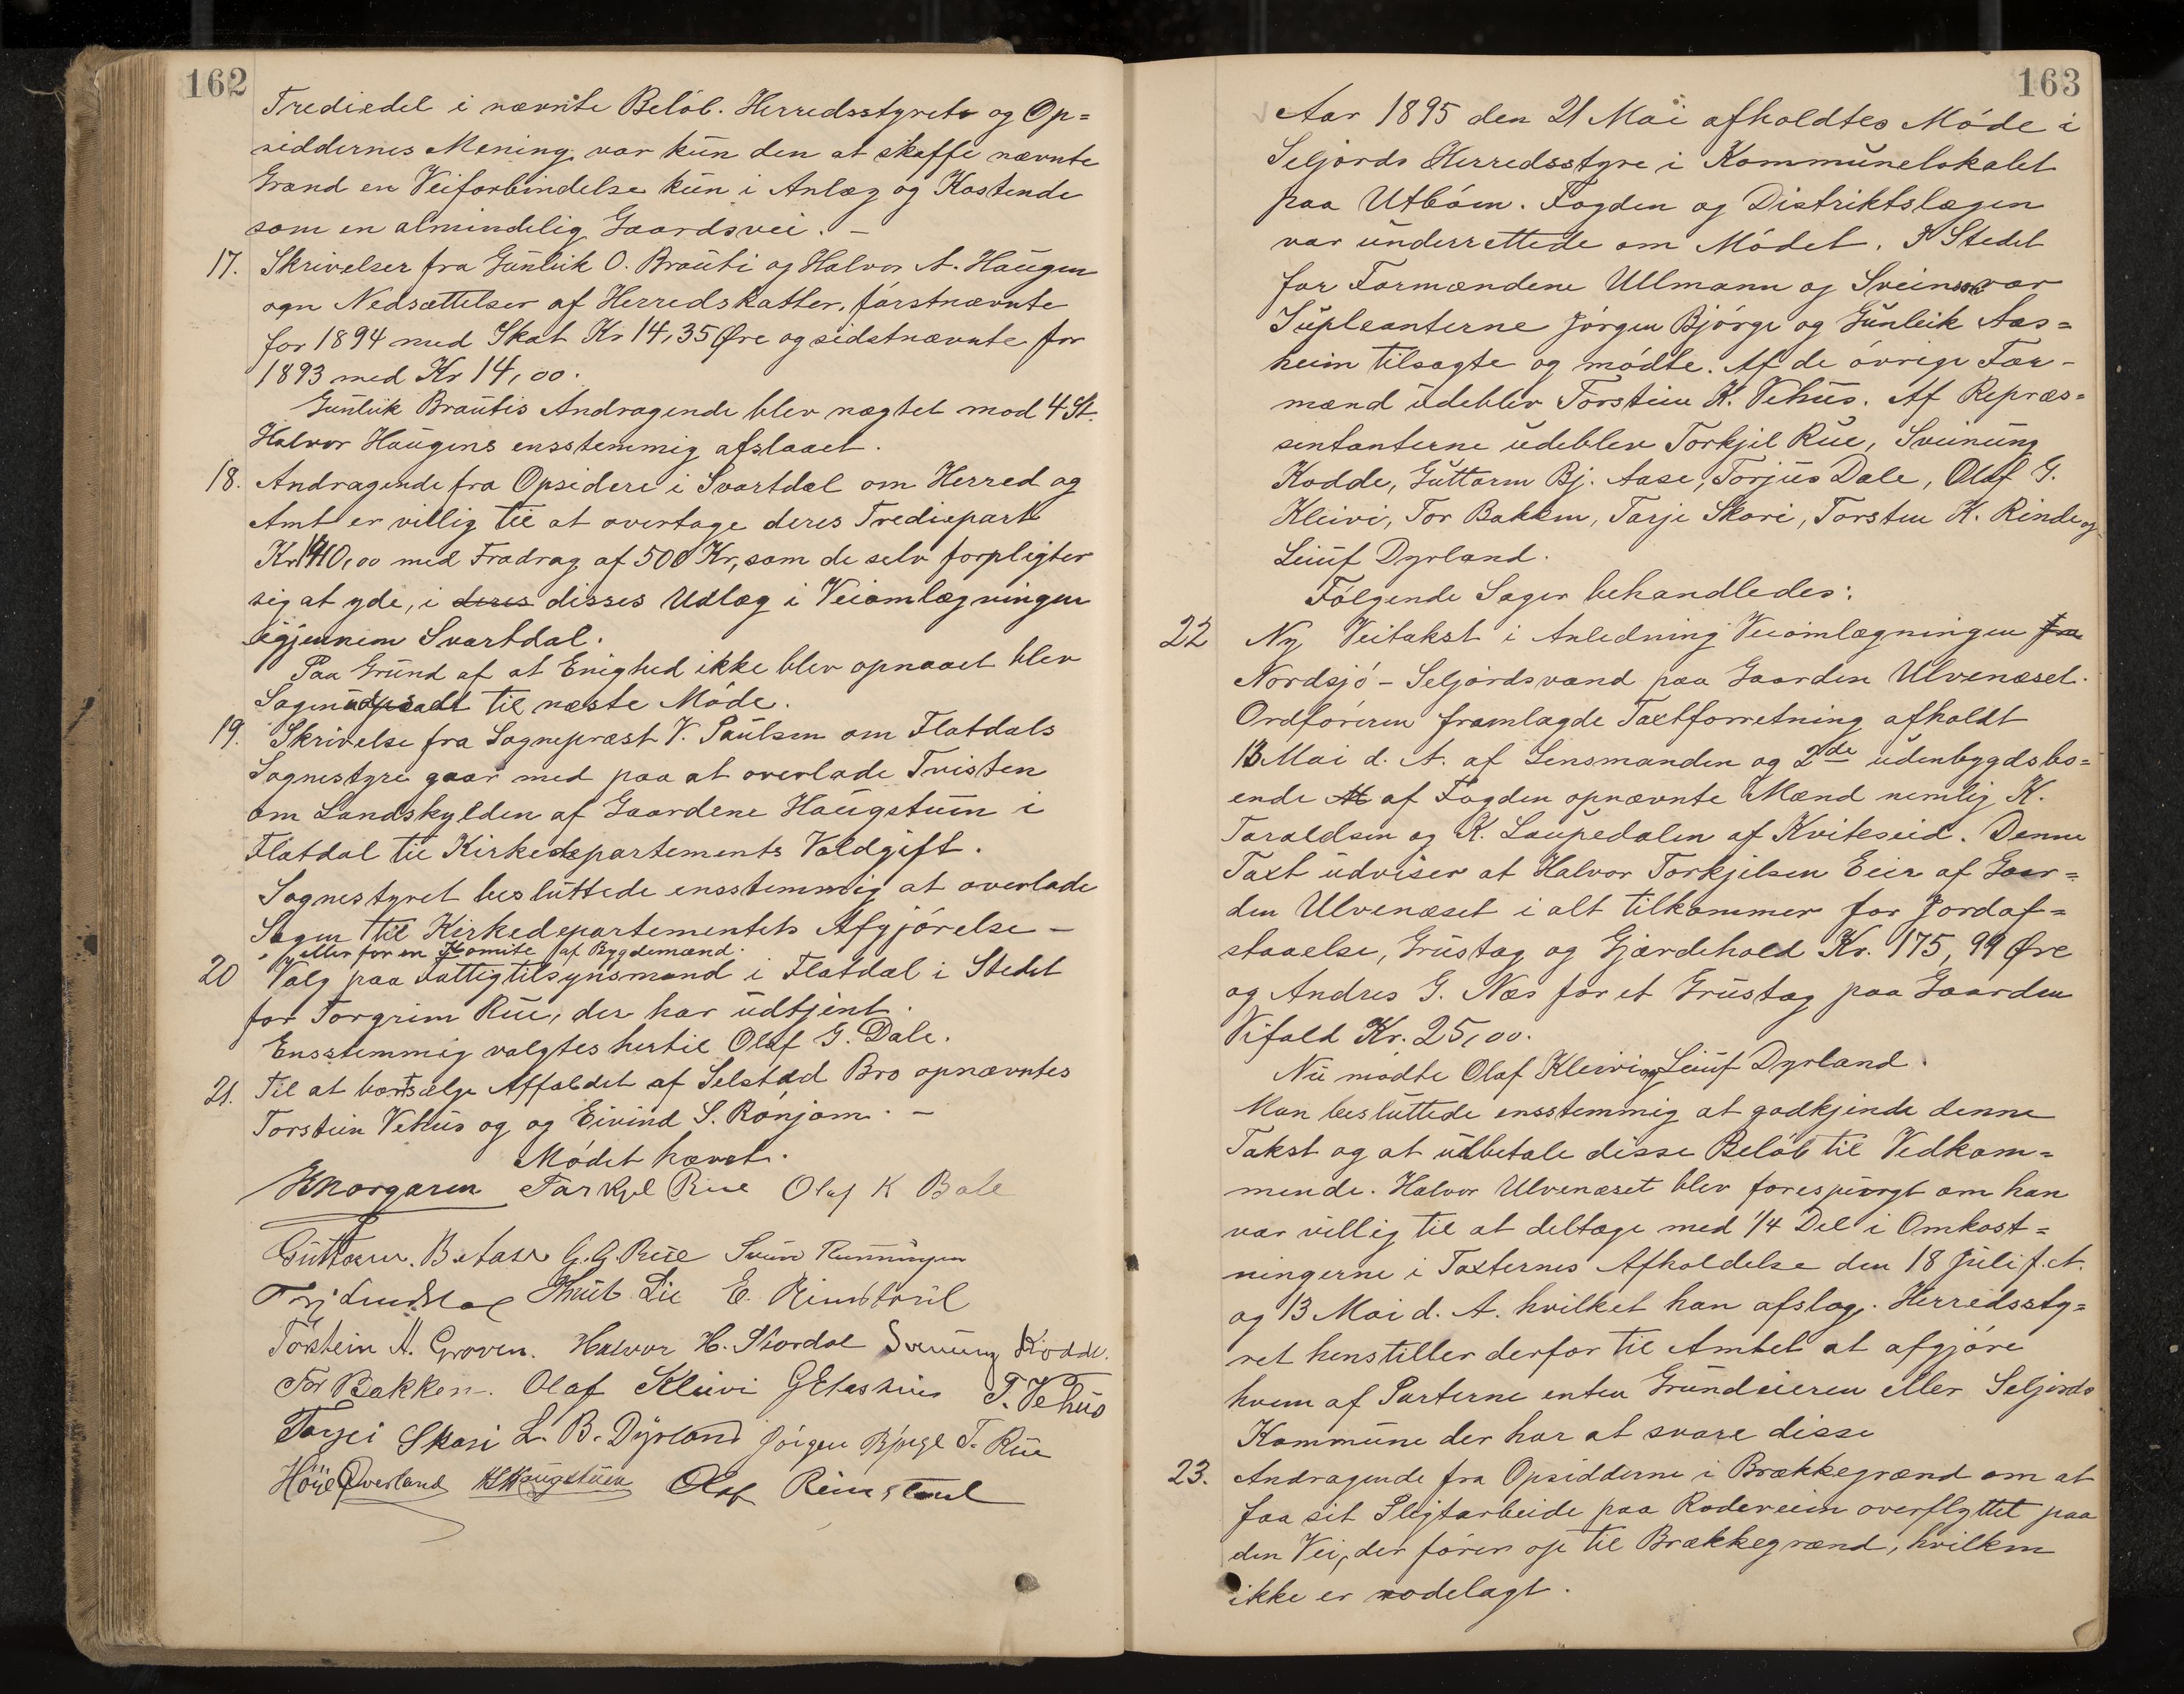 162
Trediedel i nævnte Beløb. Herredsstyrets og Op=
siddernes Mening var kun den at skaffe nævnte
Grænd en Veiforbindelse kun i Anlæg og Kostende
som en almindelig Gaardsvei. –
17. Skrivelser fra Gunleik O. Brauti og Halvor A. Haugen
ogn Nedsættelser af Herredskatter, førstnævnte
for 1894 med Skat Kr 14,35 Øre og sidstnævnte for
1893 med Kr 14,00.
Gunleik Brautis Andragende blev nægtet mod 4 St.
Halvor Haugens ensstemmig afslaaet.
18. Andragende fra Opsidere i Svartdal om Herred og
Amt er villig til at overtage deres Trediepart
Kr 1410,00 med Fradrag af 500 Kr, som de selv forpligter
sig at yde, i deres disses Udlæg i Veiomlægningen
igjennem Svartdal.
Paa Grund af at Enighed ikke blev opnaaet blev
Sagen udsadt til næste Møde.
19. Skrivelse fra Sognepræst V. Paulsen om Flatdals
Sognestyre gaar med paa at overlade Tvisten
om Landskylden af Gaardene Haugstuin i
Flatdal til Kirkedepartements Voldgift.
Sognestyret besluttede ensstemmig at overlade
Sagen til Kirkedepartementets Afgjørelse –
eller for en Komite af Bygdemænd.
20 Valg paa Fattigtilsynsmand i Flatdal i Stedet
for Torgrim Rue, der har udtjent.
Ensstemmig valgtes hertil Olaf G. Dale.
21. Til at bortsælge Affaldet af Selstad Bro opnævntes
Torstein Vehus og og Eivind S. Rønjom. –
Mødet hævet.
Tarkjel Rue Olaf K Bale
Guttorm G. G. Rue Svein
Knut Lie E. Rimstvül
Torstein A. Groven. Halvor H. Flordal Sveinung Kodde.
Tor Bakken. Olaf Kleivi T. Vehus
Tarjei Skori L. B. Dyrland Jørgen Bjørge T. Rue
Høye Øverland Olaf Reinstaul
163
Aar 1895 den 21 Mai afholdtes Møde i
Seljords Herredsstyre i Kommunelokalet
paa Utbøen. Fogden og Distriktslægen
var underrettede om Mødet. I Stedet
for Formændene Ullmann og Sveinson var
Supleanterne Jørgen Bjørge og Gunleik Aas=
heim tilsagte og mødte. Af de øvrige For-
mænd udeblev Torstein K. Vehus. Af Repræs=
sentanterne udeblev Torkjil Rue, Sveinung
Kodde, Guttorm Bj. Aase, Torjus Dale, Olaf G.
Kleivi, Tor Bakken, Tarje Skori, Torsten K. Rinde og
Leiuf Dyrland.
Følgende Sager behandledes:
22 Ny Veitakst i Anledning Veiomlægningen fra
Nordsjø – Seljordsvand paa Gaarden Ulvenæset.
Ordføreren framlagde Taxtforretning afholdt
13 Mai d. A. af Lensmanden og 2de udenbygdsbo=
ende M af Fogden opnævnte Mænd nemlig K.
Taraldsen og K. Laupedalen af Kviteseid. Denne
Taxt udviser at Halvor Torkjilsen Eier af Gaar=
den Ulvenæset i alt tilkommer for Jordaf=
staaelse, Grustag og Gjærdehold Kr. 175,99 Øre
og Andres G. Næs for et Grustag paa Gaarden
Vifald Kr. 25,00.
Nu mødte Olaf Kleivi og Leiuf Dyrland.
Man besluttede ensstemmig at godkjende denne
Takst og at udbetale disse Beløb til Vedkom=
mende. Halvor Ulvenæset blev forespurgt om han
var villig til at deltage med 1/4 Del i Omkost=
ningerne i Taxternes Afholdelse den 18 Juli f. A.
og 13 Mai d. A. hvilket han afslog. Herredssty=
ret henstiller derfor til Amtet at afgjøre
hvem af Parterne enten Grundeieren eller Seljords
Kommune der har at svare disse
23. Andragende fra Opsidderne i Brækkegrænd om at
faa sit Pligtarbeide paa Rodeveien overflyttet paa
den Vei, der fører op til Brækkegrænd, hvilken
ikke er rodelagt.